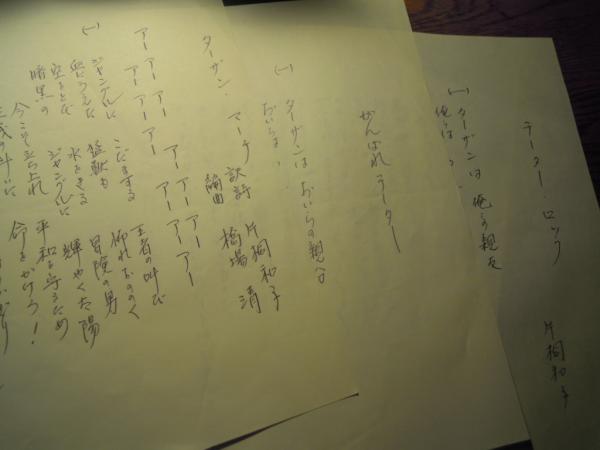 ラーター・ロック
片桐和子
(一) ターザンは 俺らの親友
俺らは、、
がんばれラーター
(一) ターザンは おいらの親分
おいらは、、
ターザン・マーチ 訳詩 片桐和子
編曲 橋場 清
アー アー アー アー アー
アー アー アー アー アー
(一) ジャングルに こだまする 王者の叫び
血にうえた 猛獣も 怖れおののく
空をとび 水をきる 冒険の男
暗黒の ジャングルに 輝やく太陽
今こそ立ち上れ 平和を守るため
正義の斗いに 命をかけろ！